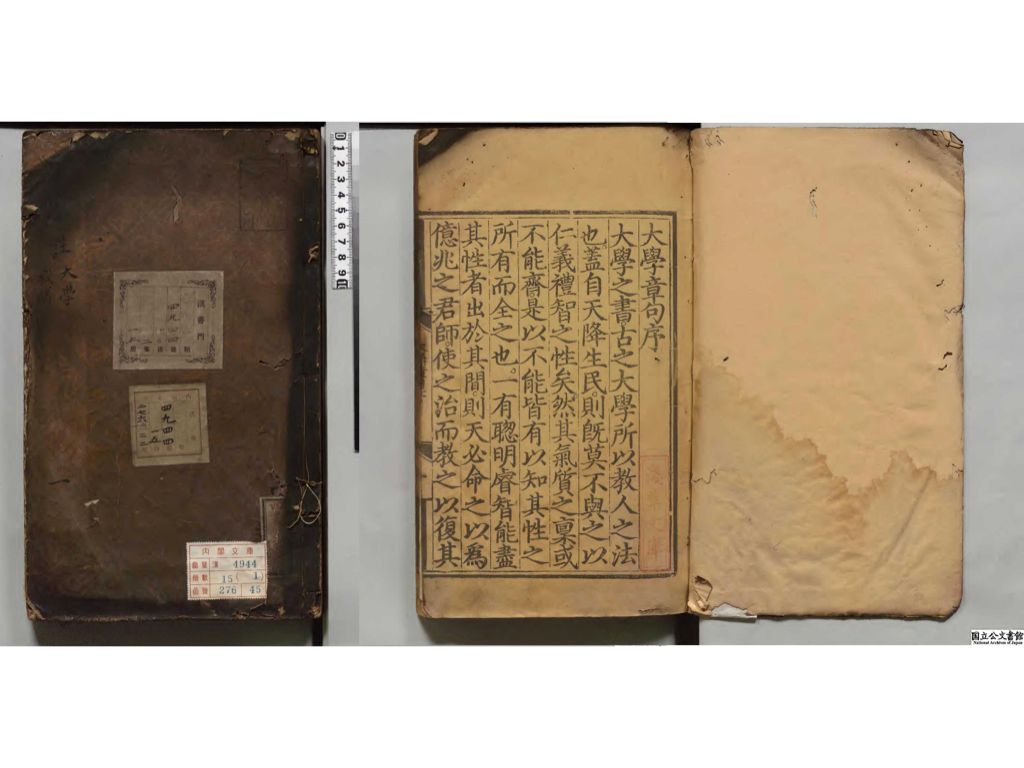 大學章句序
大學之書古之大學所以教人之法
也蓋自天降生民則既莫不與之以
仁義禮智之性矣然其氣質之稟或
不能齊是以不能皆有以知其性之
所有而全之也一有聰明睿智能盡
其性者出於其間則天必命之以爲
億兆之君師使之治而教之以復其
大學
漢書門
四九四四
一五
一
内閣文庫
番號 漢 4944
冊數 15 (1)
函號 276 45
1 2 3 4 5 6 7 8 9
国立公文書館
National Archives of Japan